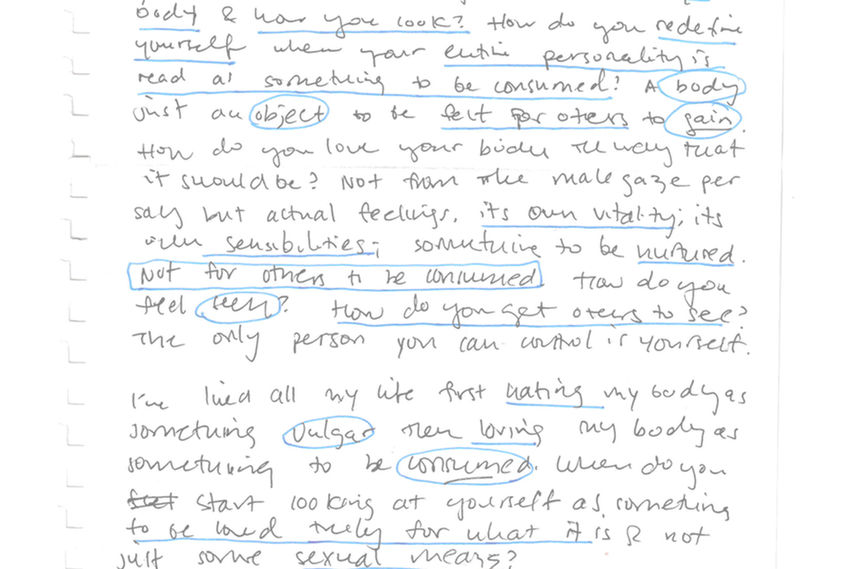 body & how you look? How do you redefine
yourself when your entire personality is
read as something to be consumed? A body
just an object to be felt for oters to gain.
How do you love your body the way that
it should be? Not from the male gaze per
say but actual feelings, its own vitality; its
own sensibilities; something to be nurtured.
Not for others to be consumed. How do you
feel seen? How do you get oters to see?
The only person you can control is yourself.
I've lived all my life first hating my body as
something vulgar then loving my body as
something to be consumed. When do you
start looking at yourself as something
to be loved truly for what it is & not
just some sexual means?